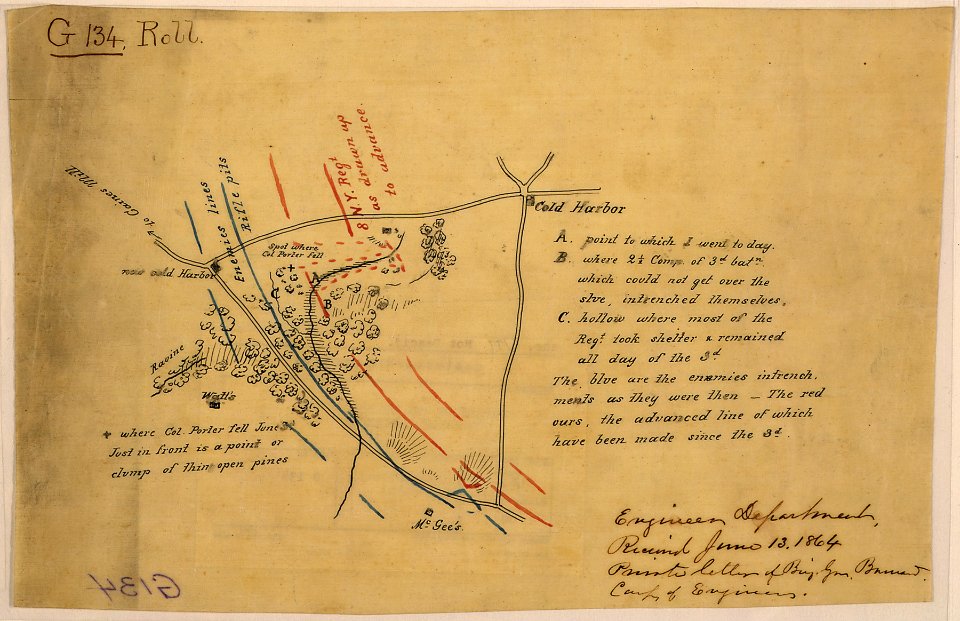 G 134, Roll.
8 N.Y. Regt
as drawn up
to advance.
Enemies lines
Rifle pits
to Gaines Mill
Cold Harbor
Spot where
Col Porter fell
new cold Harbor
A
B
C
Ravine
Watts
McGee's.
+ where Col. Porter fell June 3
Just in front is a point or
clump of thin open pines
A. point to which I went to day.
B. where 2½ Comp. of 3d batn.
which could not get over the
slve, intrenched themselves.
C. hollow where most of the
Regt took shelter & remained
all day of the 3d
The blve are the enemies intrench.
ments as they were then — The red
ours, the advanced line of which
have been made since the 3d.
Engineer Department,
Received June 13. 1864
Private letter of Brig. Gen. Barnard.
Corps of Engineers.
G134